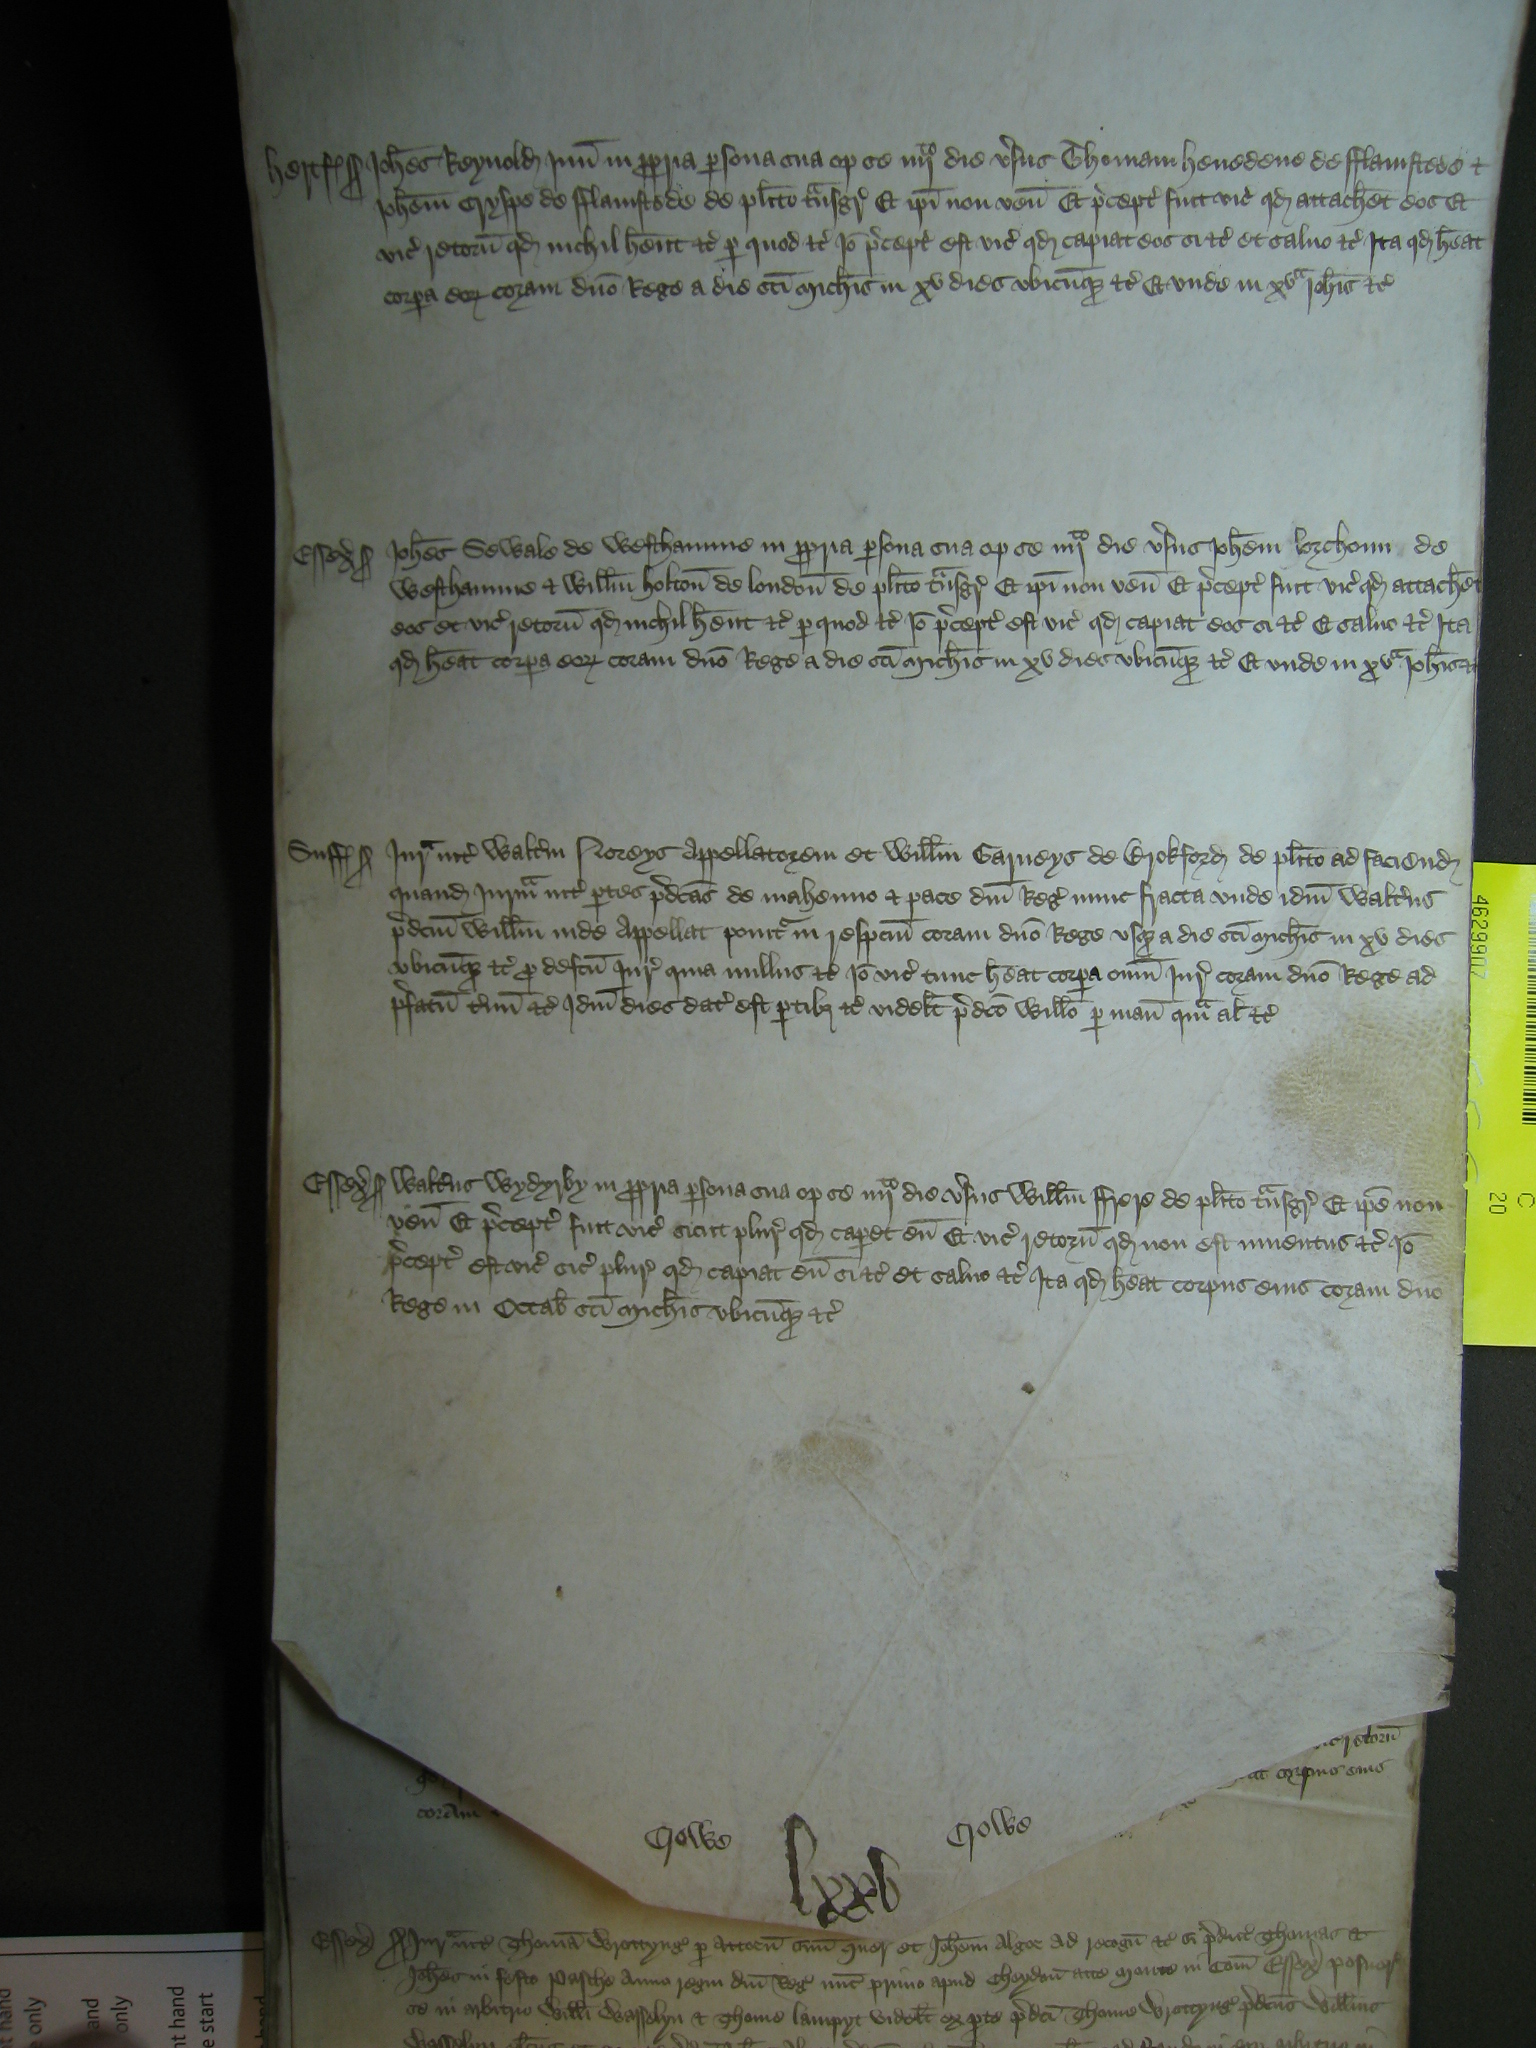 Hertf ss Joh̄es Reynold iun̄ in ꝓpria ꝑsona sua op se iiijͭͦ die v̓sus Thomam Henedene de Fflamstede ⁊
Joh̄em Cryspe de Fflamstede de pl̄ito t̄nsgr̄ Et ip̄i non ven̄ Et p̄cept̄ fuit vic̄ qd̄ attach̄et eos Et
vic̄ retorn̄ qd̄ nichil h̄ent ⁊c̄ ꝑ quod ⁊c̄ Iō p̄cept̄ est vic̄ qd̄ capiat eos si ⁊c̄ et saluo ⁊c̄ Ita qd̄ h̄eat
corpa eoꝝ coram dn̄o Rege a die sc̄i Mich̄is in xv dies vbicūqꝫ ⁊c̄ Et vnde in xvᵃ Joh̄is ⁊c̄
Essex̄ ss Joh̄es Sewale de Westhamme in ꝓpria ꝑsona sua op se iiijͭͦ die v̓sus Joh̄em Lorchonn de
Westhamme ⁊ Will̄m Holton̄ de london̄ de pl̄ito t̄nsgr̄ Et ip̄i non ven̄ Et p̄cept̄ fuit vic̄ qd̄ attach̄et
eos et vic̄ retorn̄ qd̄ nichil h̄ent ⁊c̄ ꝑ quod ⁊c̄ Iō p̄cept̄ est vic̄ qd̄ capiat eos si ⁊c̄ Et saluo ⁊c̄ Ita
qd̄ h̄eat corpa eoꝝ coram dn̄o Rege a die sc̄i Mich̄is in xv dies vbicūqꝫ ⁊c̄ Et vnde in xvᵃ Joh̄is ⁊c̄
Suff ss Jur̄ int̄ Walt̄m Noreys Appellatorem et Will̄m Garneys de Brokford de pl̄ito ad faciend̄
quand̄ Jur̄am int̄ ꝑtes p̄dc̄as de mahemio ⁊ pace dn̄i Reḡ nunc fracta vnde idm̄ Walt̄us
p̄dcm̄ Will̄m inde Appellat ponit̄ in resp̄cm̄ coram dn̄o Rege vsqꝫ a die sc̄i Mich̄is in xv dies
vbicūqꝫ ⁊c̄ ꝓ defc̄u Jur̄ quia nullus ⁊c̄ Iō vic̄ tunc h̄eat corpa om̄i Jur̄ coram dn̄o Rege ad
p̄fatū t̄m̄ ⁊c̄ Idm̄ dies dat̄ est ꝑtibꝫ ⁊c̄ videlt̄ p̄dc̄o Will̄o ꝑ man̄ qua al̄ ⁊c̄
Essex̄ ss Walt̄us Wydyrby in ꝓpria ꝑsona sua op se iiijͭͦ die v̓sus Will̄m Ffrere de pl̄ito t̄nsgr̄ Et ip̄e non
ven̄ Et p̄cept̄ fuit vic̄ sicut plur̄ qd̄ caperet eū Et vic̄ retorn̄ qd̄ non est inuentus ⁊c̄ Iō
p̄cept̄ est vic̄ sic̄ plur̄ qd̄ capiat eū si ⁊c̄ et saluo ⁊c̄ Ita qd̄ h̄eat corpus eius coram dn̄o
Rege in Octab̄ sc̄i Mich̄is vbicūqꝫ ⁊c̄
retorn̄
corpus eius
coram
Rolbe Rolbe
lxxv
Essex̄ ss Jur̄ int̄ Thomā Wrottynḡ ꝑ attorn̄ suū quer̄ et Joh̄em Algor ad recogn̄ ⁊c̄ si p̄dict̄ Thomas et
Joh̄es in festo Pasche Anno regni dn̄i Reḡ nūc primo apud Theydon̄ atte Mounte in Com̄ Essex̄ posuer̄
se in arbitrio Will̄i Wasselyn ⁊ Thome lampyt videlt̄ ex ꝑte p̄dc̄i Thome Wrottynḡ p̄dc̄us Will̄us
4629907
C
20
nt hand
e only
and
only
ht hand
e start
hand